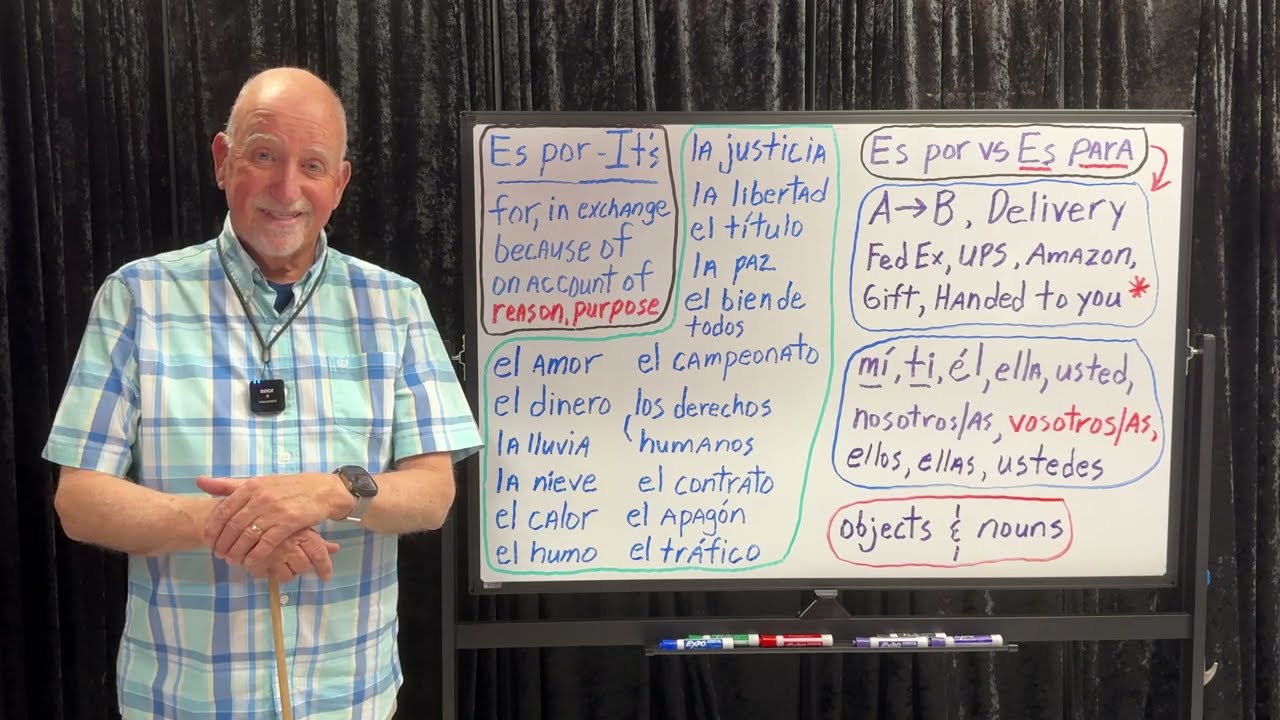 Es por - It's
for, in exchange
because of
on account of
reason, purpose
la justicia
la libertad
el título
la paz
el bien de
todos
el amor
el dinero
la lluvia
la nieve
el calor
el humo
el campeonato
los derechos
humanos
el contrato
el apagón
el tráfico
Es por vs Es para
A→B, Delivery
FedEx, UPS, Amazon,
Gift, Handed to you *
mí, ti, él, ella, usted,
nosotros/as, vosotros/as,
ellos, ellas, ustedes
objects & nouns
EXPO